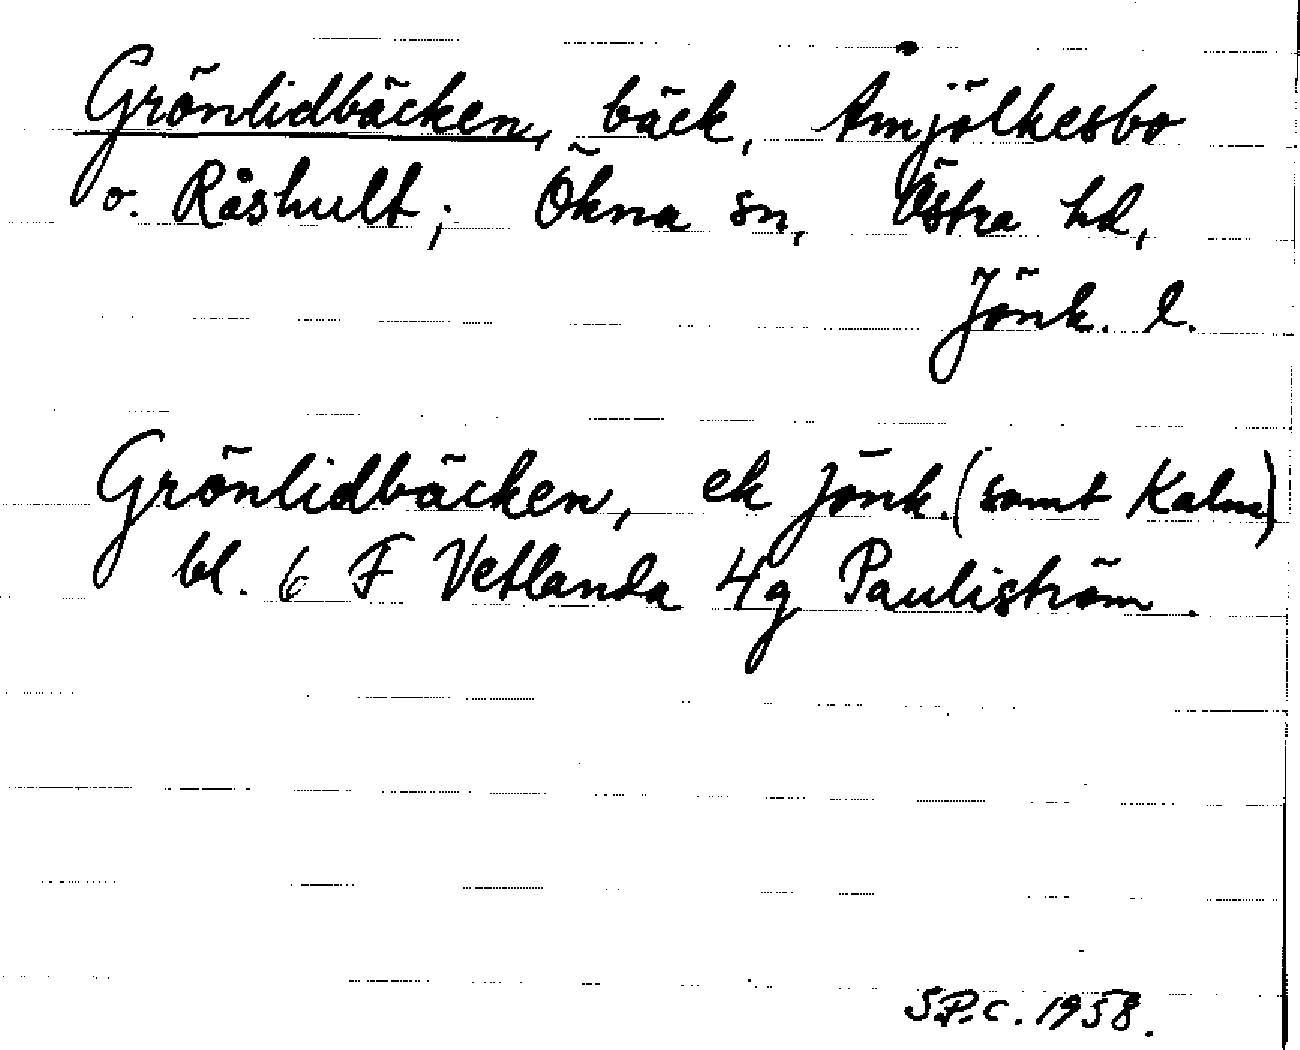 Grönlidbäcken, bäck, Amjölkesbo
o. Råshult; Ökna sn, Östra hd,
Jönk. l.
Grönlidbäcken, ek Jönk. (samt Kalm)
bl. 6 F Vetlanda 4g Pauliström.
S.P.C. 1958.